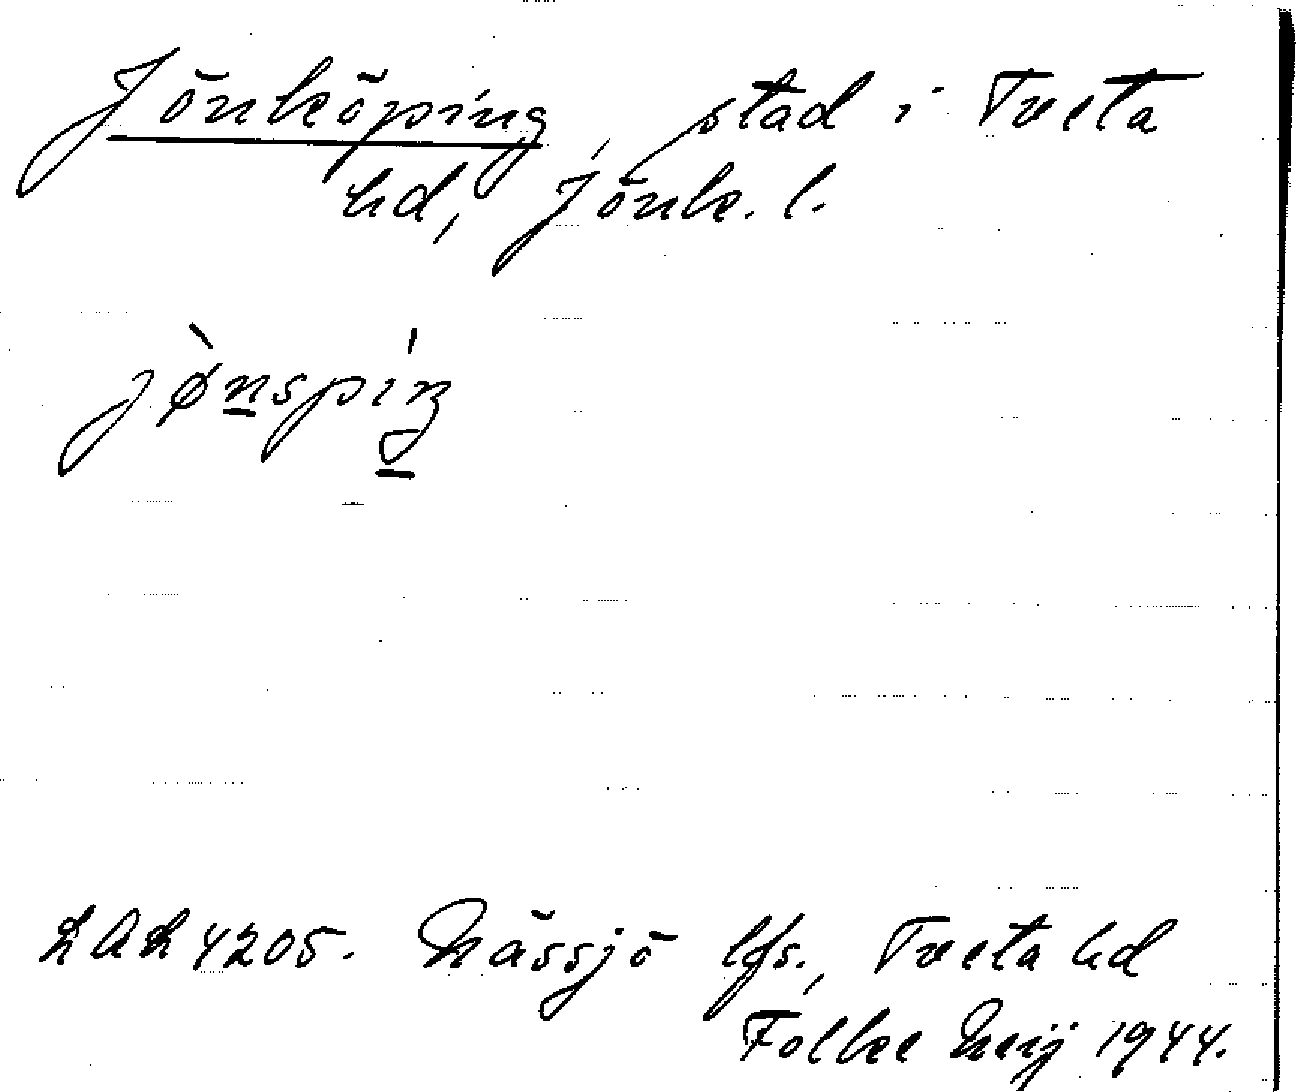 Jönköping, stad i Tveta
hd, Jönk. l.
jø̀nspíŋ
LAL 4205. Nässjö lfs., Tveta hd
Folke Neij 1944.